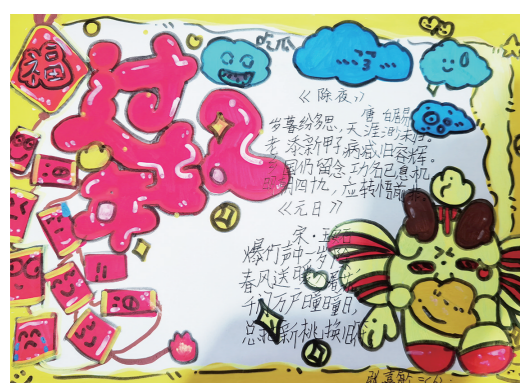 福
过年
吃瓜
《除夜》
唐·白居易
岁暮纷多思,天涯渺未归。
老添新甲子,病减旧容辉。
国仍留念,功名已息机
明四九,应转悟前
《元日》
宋·王
爆竹声中一岁
春风送暖
千门万户曈曈日,
总把新桃换旧